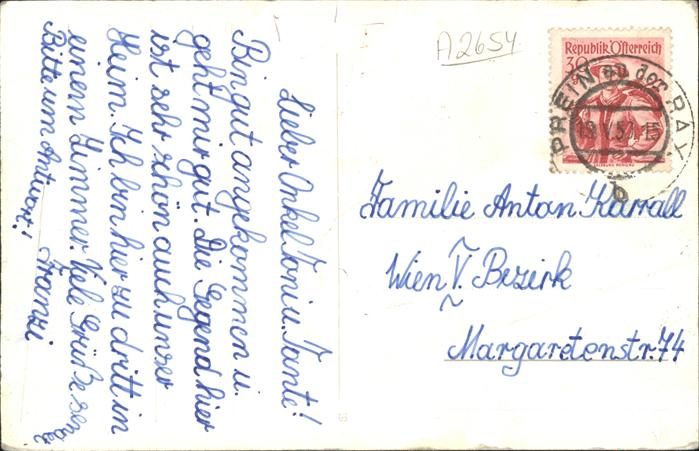 Lieber Onkel Toni u. Tante!
Bin gut angekommen u.
geht mir gut. Die Gegend hier
ist sehr schön auch unser
Heim. Ich bin hier zu dritt in
einem Zimmer. Viele Grüße
Bitte um Antwort! Franzi
A2654
Republik Österreich
30
PREIN an der RAX
b
Familie Anton Karrall
Wien V. Bezirk
Margaretenstr. 74